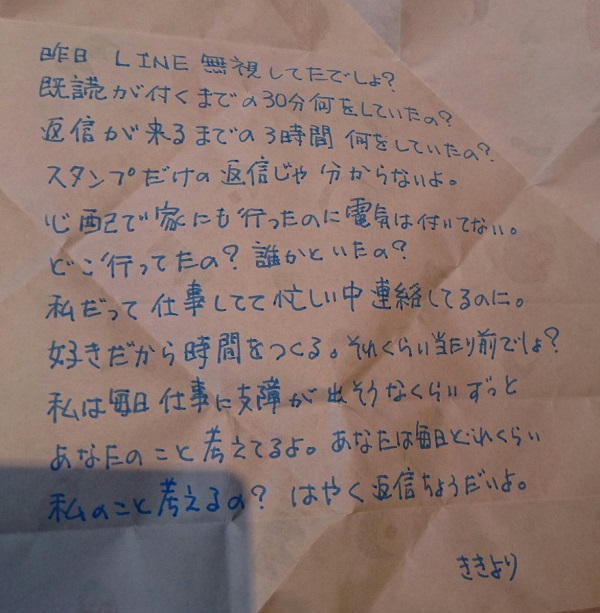 昨日 LINE 無視してたでしょ?
既読が付くまでの30分何をしていたの?
返信が来るまでの3時間 何をしていたの?
スタンプだけの返信じゃ分からないよ。
心配で家にも行ったのに電気は付いてない。
どこ行ってたの? 誰かといたの?
私だって仕事してて忙しい中連絡してるのに。
好きだから時間をつくる。それくらい当たり前でしょ?
私は毎日仕事に支障が出そうなくらいずっと
あなたのこと考えてるよ。あなたは毎日どれくらい
私のこと考えるの? はやく返信ちょうだいよ。
ききより